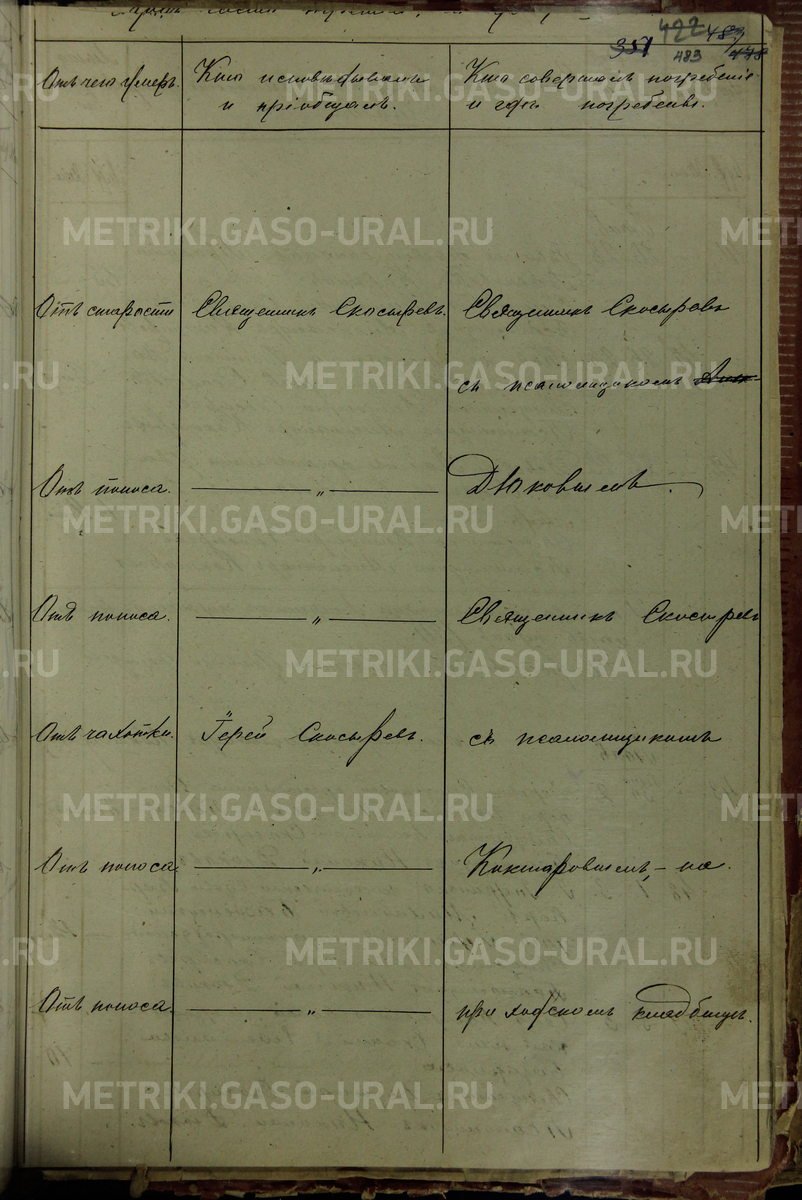 357 422 483
483 478
Отъ чего умеръ. Кто исповѣдывалъ Кто совершалъ погребеніе
и пріобщалъ. и гдѣ погребены.
Отъ старости Священникъ Скосыревъ. Священникъ Скосыревъ
съ псаломщикомъ
Отъ поноса. — „ — Дюковымъ.
Отъ поноса. — „ — Священникъ Скосыревъ
Отъ чахотки. Іерей Скосыревъ. съ псаломщикомъ
Отъ поноса — „ — на
Отъ поноса. — „ — приходскомъ кладбищѣ.
METRIKI.GASO-URAL.RU